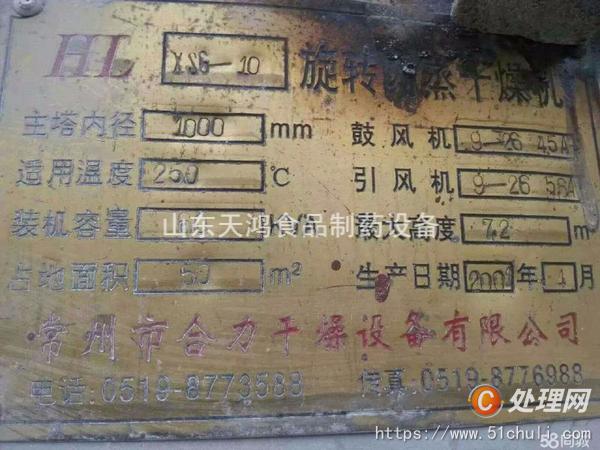 HL XSG-10 旋转闪蒸干燥机
主塔内径 1000 mm 鼓风机 9-26 4.5A
适用温度 250 ℃ 引风机 9-26 5.6A
装机容量 最大高度 7.2 m
山东天鸿食品制药设备
占地面积 50 m² 生产日期 2001年 月
常州市合力干燥设备有限公司
电话:0519-8773588 传真:0519-8776988
C 处理网
https://www.51chuli.com
58同城